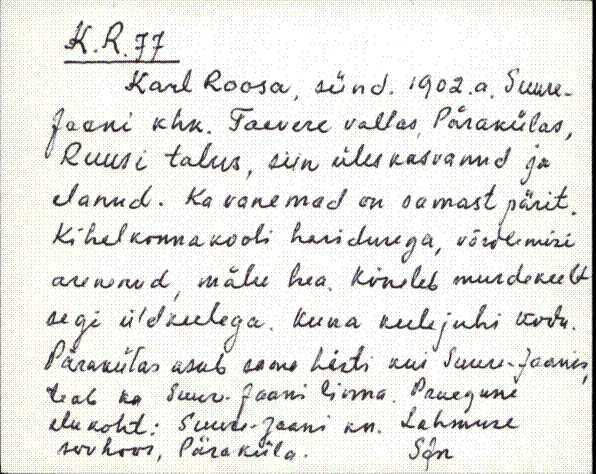 K.R. 77
Karl Roosa, sünd. 1902.a. Suure-
Jaani khk. Taevere vallas, Pärakülas,
Ruusi talus, siin üles kasvanud ja
elanud. Ka vanemad on samast pärit.
Kihelkonnakooli haridusega, võrdlemisi
arenenud, mälu hea. Kõneleb murdekeelt
segi ü'dkeelega. Kuna keelejuhi kodu
Päraküla asub sama hästi kui Suure-Jaanis,
teab ka Suure-Jaani linna. Praegune
elukoht: Suure-Jaani kn. Lahmuse
sovhoos, Päraküla.